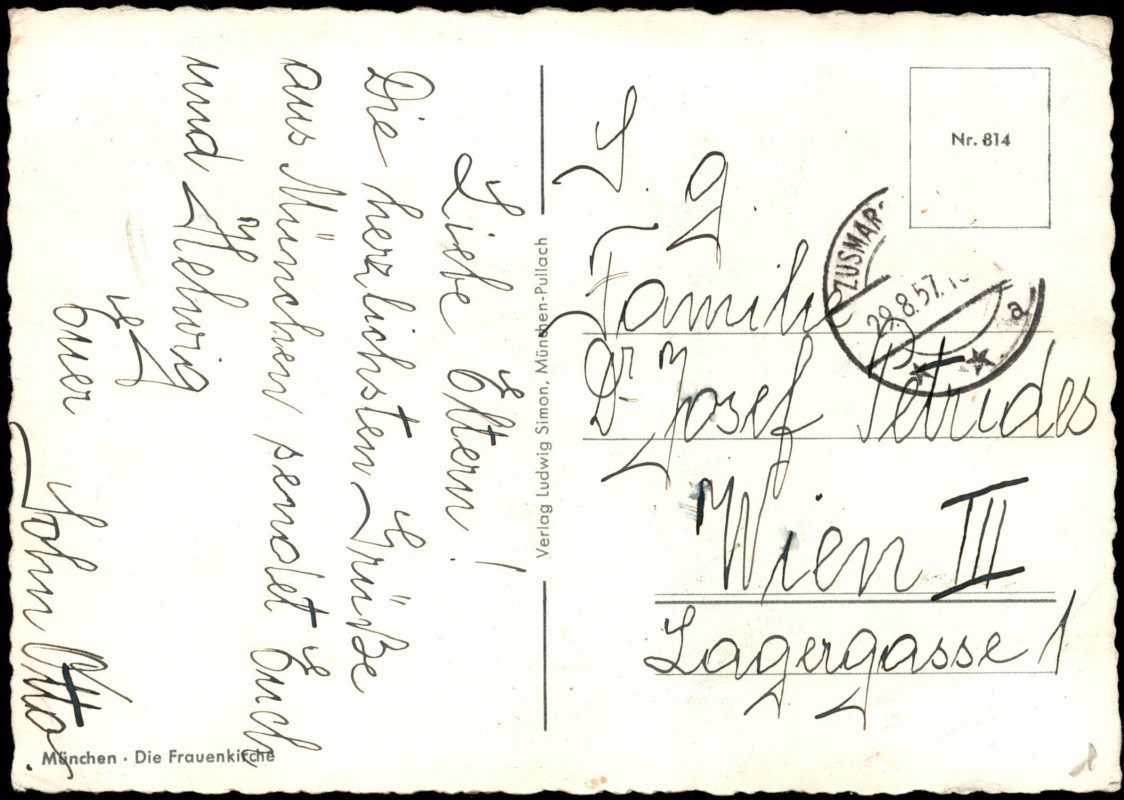 Liebe Eltern!
Die herzlichsten Grüße
aus München sendet Euch
und Helwig
Euer
Sohn Otto.
München · Die Frauenkirche
Verlag Ludwig Simon, München-Pullach
Nr. 814
ZUSMAR
29.8.57.
a
S. g.
Familie
Dr Josef Petrides
Wien III
Lagergasse 1